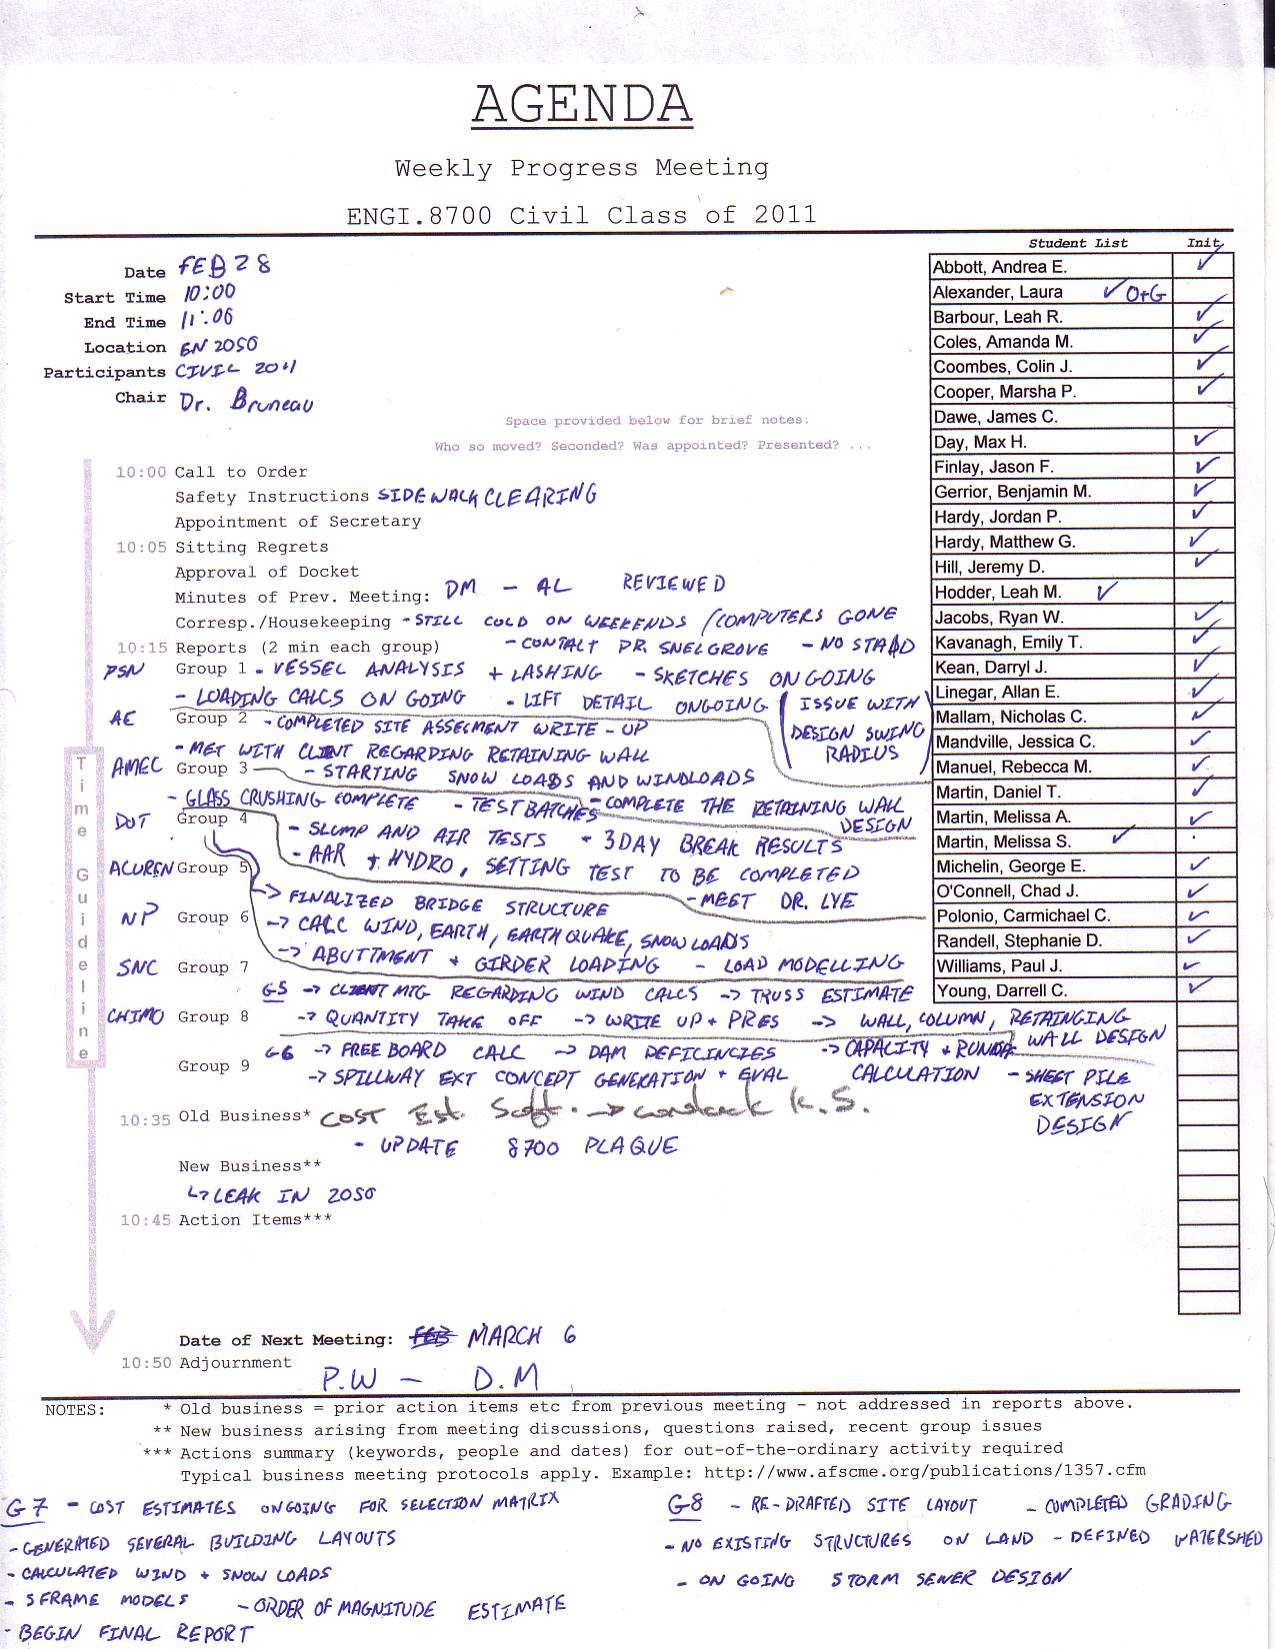 AGENDA
Weekly Progress Meeting
ENGI.8700 Civil Class of 2011
Student List Init.
Date FEB 28
Start Time 10:00
End Time 11:06
Location EN 2050
Participants CIVIL 2011
Chair Dr. Bruneau
Abbott, Andrea E. ✓
Alexander, Laura ✓ O+G
Barbour, Leah R. ✓
Coles, Amanda M. ✓
Coombes, Colin J. ✓
Cooper, Marsha P. ✓
Dawe, James C.
Day, Max H. ✓
Finlay, Jason F. ✓
Gerrior, Benjamin M. ✓
Hardy, Jordan P. ✓
Hardy, Matthew G. ✓
Hill, Jeremy D. ✓
Hodder, Leah M. ✓
Jacobs, Ryan W. ✓
Kavanagh, Emily T. ✓
Kean, Darryl J. ✓
Linegar, Allan E. ✓
Mallam, Nicholas C. ✓
Mandville, Jessica C. ✓
Manuel, Rebecca M. ✓
Martin, Daniel T. ✓
Martin, Melissa A. ✓
Martin, Melissa S. ✓
Michelin, George E. ✓
O'Connell, Chad J. ✓
Polonio, Carmichael C. ✓
Randell, Stephanie D. ✓
Williams, Paul J. ✓
Young, Darrell C. ✓
Space provided below for brief notes:
Who so moved? Seconded? Was appointed? Presented? ...
Time Guideline
10:00 Call to Order
Safety Instructions SIDEWALK CLEARING
Appointment of Secretary
10:05 Sitting Regrets
Approval of Docket
Minutes of Prev. Meeting: DM - AL REVIEWED
Corresp./Housekeeping - STILL COLD ON WEEKENDS / COMPUTERS GONE
10:15 Reports (2 min each group) - CONTACT DR. SNELGROVE - NO STAAD
PSN Group 1 - VESSEL ANALYSIS + LASHING - SKETCHES ON GOING
- LOADING CALCS ON GOING - LIFT DETAIL ONGOING ( ISSUE WITH DESIGN SWING RADIUS )
AE Group 2 - COMPLETED SITE ASSECMENT WRITE-UP
- MET WITH CLIENT REGARDING RETAINING WALL
AMEC Group 3 - STARTING SNOW LOADS AND WINDLOADS
- GLASS CRUSHING COMPLETE - TEST BATCHES - COMPLETE THE RETAINING WALL DESIGN
DOT Group 4 - SLUMP AND AIR TESTS - 3 DAY BREAK RESULTS
- AAR + HYDRO, SETTING TEST TO BE COMPLETED
ACUREN Group 5
-> FINALIZED BRIDGE STRUCTURE - MEET DR. LYE
NP Group 6 -> CALC WIND, EARTH, EARTHQUAKE, SNOW LOADS
-> ABUTTMENT + GIRDER LOADING - LOAD MODELLING
SNC Group 7
G5 -> CLIENT MTG REGARDING WIND CALCS -> TRUSS ESTIMATE
CHIMO Group 8 -> QUANTITY TAKE OFF -> WRITE UP + PRES -> WALL, COLUMN, RETAINGING WALL DESIGN
G6 -> FREE BOARD CALC -> DAM DEFICINCIES -> CAPACITY + RUNOFF CALCULATION
Group 9 -> SPILLWAY EXT CONCEPT GENERATION + EVAL - SHEET PILE EXTENSION DESIGN
10:35 Old Business* COST Est. Soft. -> contact K.S.
- UPDATE 8700 PLAQUE
New Business**
↳ LEAK IN 2050
10:45 Action Items***
Date of Next Meeting: FEB MARCH 6
10:50 Adjournment
P.W - D.M
NOTES: * Old business = prior action items etc from previous meeting - not addressed in reports above.
** New business arising from meeting discussions, questions raised, recent group issues
*** Actions summary (keywords, people and dates) for out-of-the-ordinary activity required
Typical business meeting protocols apply. Example: http://www.afscme.org/publications/1357.cfm
G7 - COST ESTIMATES ONGOING FOR SELECTION MATRIX
- GENERATED SEVERAL BUILDING LAYOUTS
- CALCULATED WIND + SNOW LOADS
- SFRAME MODELS - ORDER OF MAGNITUDE ESTIMATE
- BEGIN FINAL REPORT
G8 - RE-DRAFTED SITE LAYOUT - COMPLETED GRADING
- NO EXISTING STRUCTURES ON LAND - DEFINED WATERSHED
- ON GOING STORM SEWER DESIGN